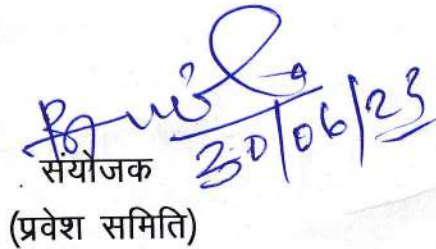 30/06/23
संयोजक
(प्रवेश समिति)